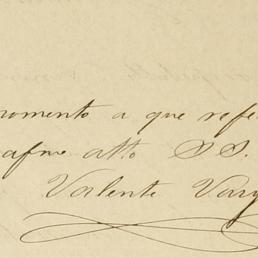 romento a que refe
afmo atto SS.
Valente Var